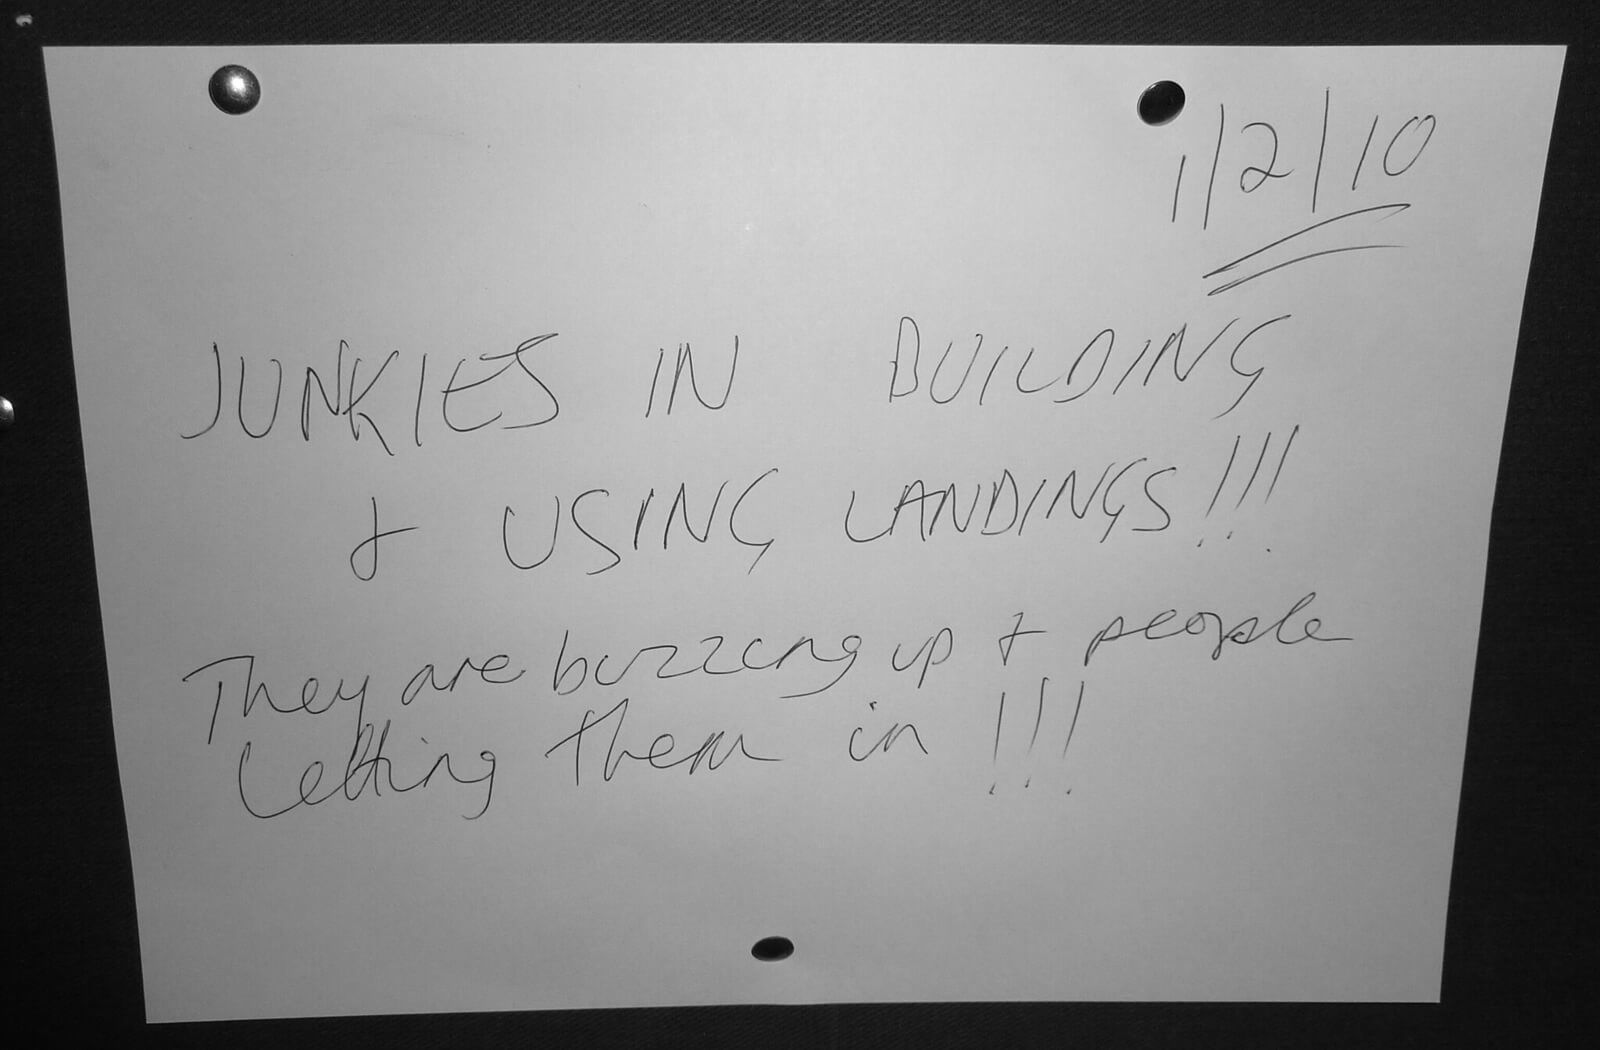 1/2/10
JUNKIES IN BUILDING
+ USING LANDINGS!!!
They are buzzing up + people
letting them in !!!